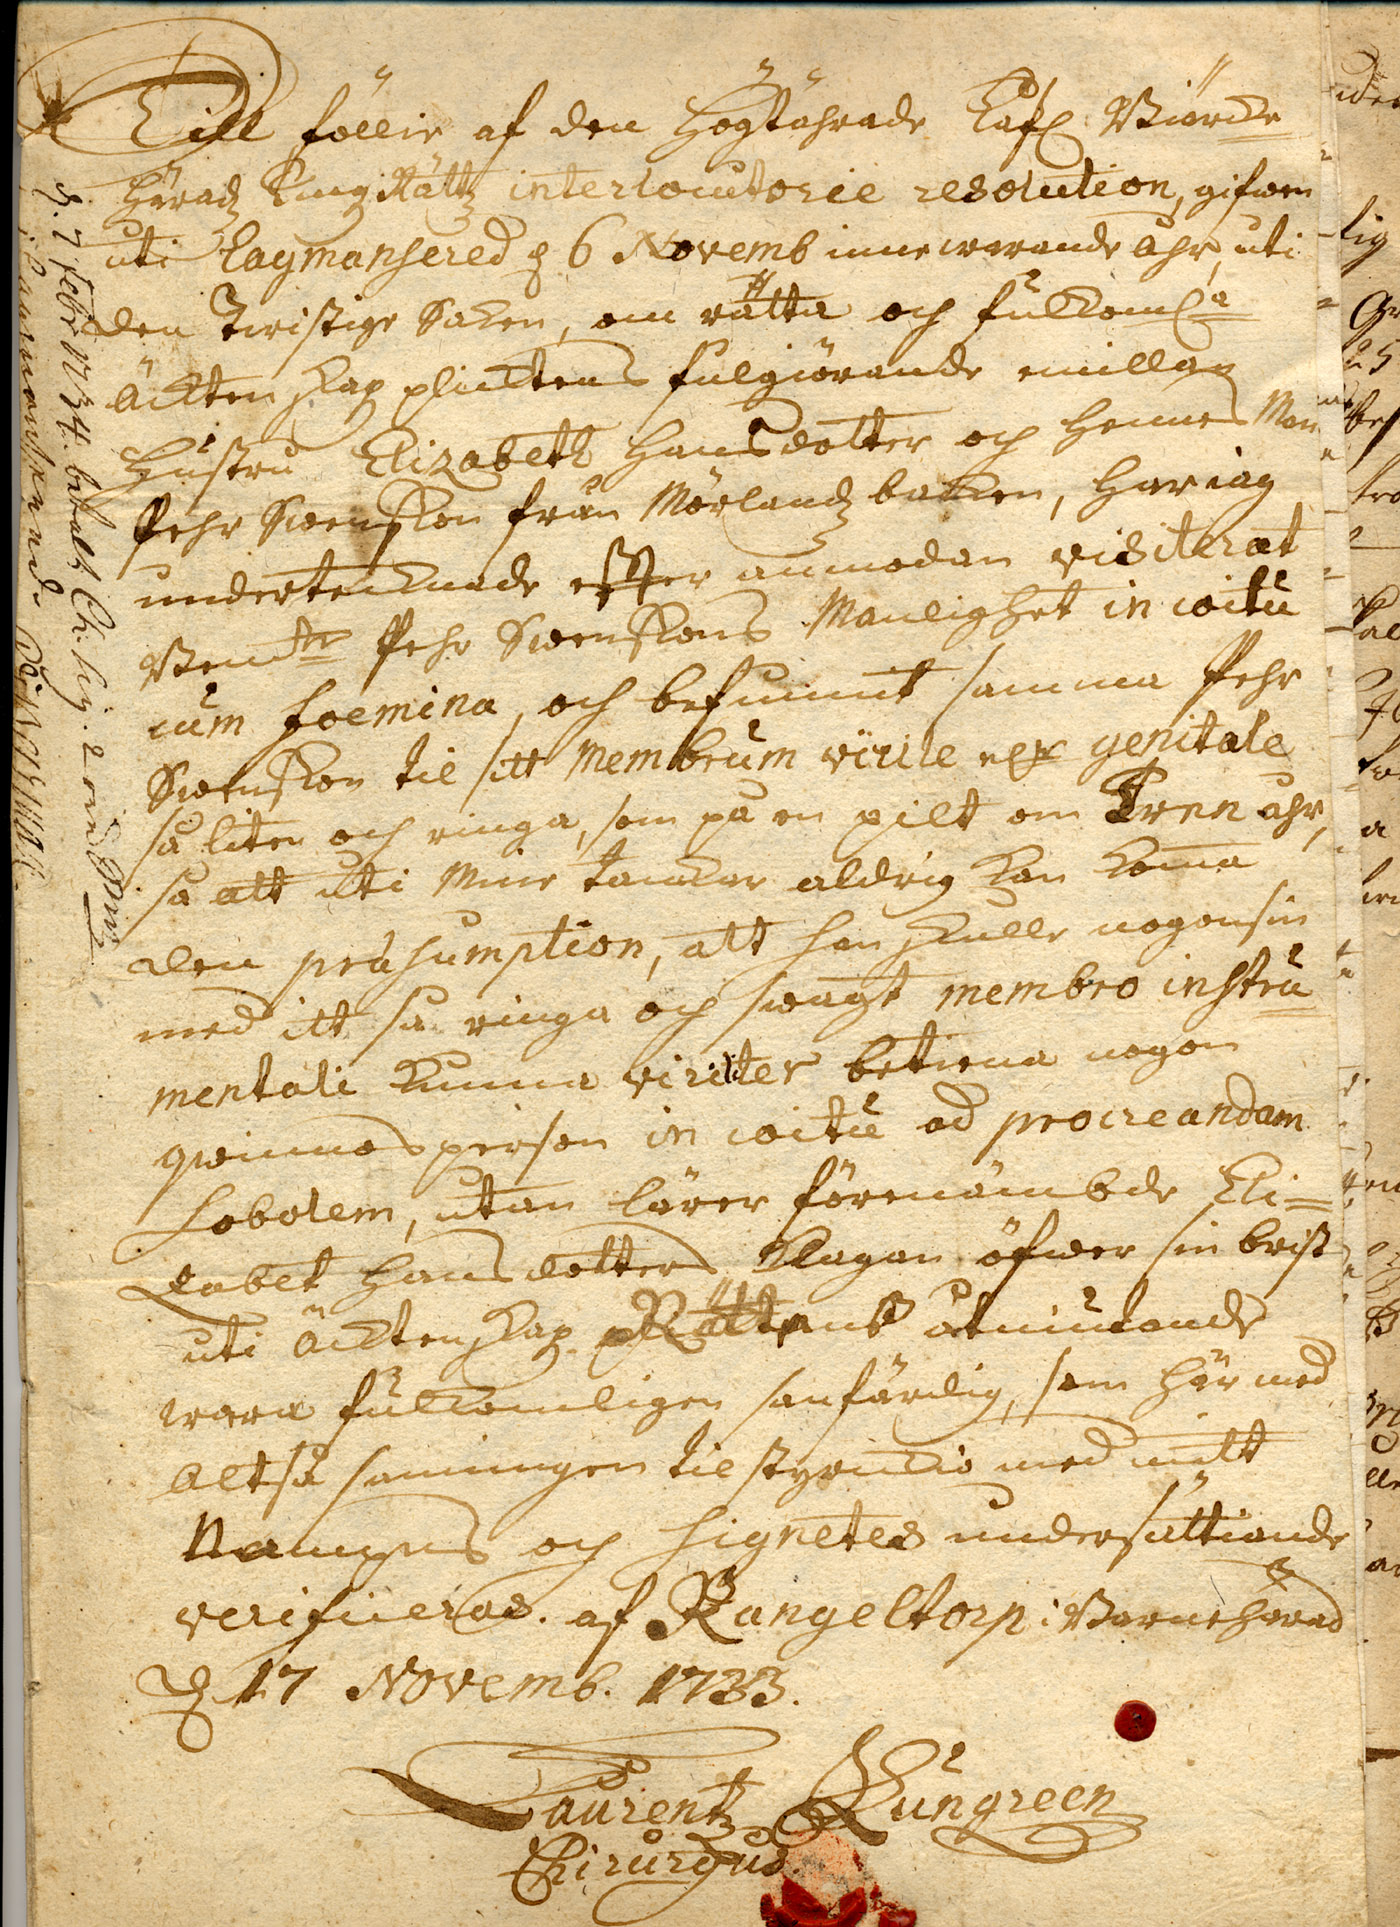 Till föllie af den Högtährade Kåft Wiärde
Härads Ting Rättz interlocutorie resolution, gifwen
uti Lagmansered d 6 Novemb innewarande åhr, uti
den twistige Saken, om rätta och fulkoml:a
Äcktenskap plicktens fulgiörande emillan
Hustru Elizabeth Hansdotter och hennes Man
Pehr Swensson från Mörlandz backen, har iag
undertecknade effter anmodan visiterat
Bem:te Pehr Swenssons Manlighet in coitu
cum foemina, och befunnit samma Pehr
Swensson til sitt Membrum virile eller genitale
så liten och ringa, som på en pilt om Trenn åhr,
så att uti mine tanckar aldrig kan komma
den præsumption, att han skulle nogonsin
med itt så ringa och swagt membro instru
mentali kunna viriliter betiena nogon
qwinnos person in coitu ad procreandam
Sobolem, utan lärer förenämbde Eli=
zabet Hansdotters klagan öfwer sin brist
uti Äcktenskap Rättens åtniutande
wara fulkomligen sanfärdig, som här med
altså sanningen til styrckio med mitt
Nampns och Signetes undersättiande
verificeras. af Rangeltorp i Barnehärad
d 17 Novemb. 1733.
Laurentz Lungreen
Chirurgus.
d. 7 Febr 1734. betalt Ch. Sig. 2 öre Smt